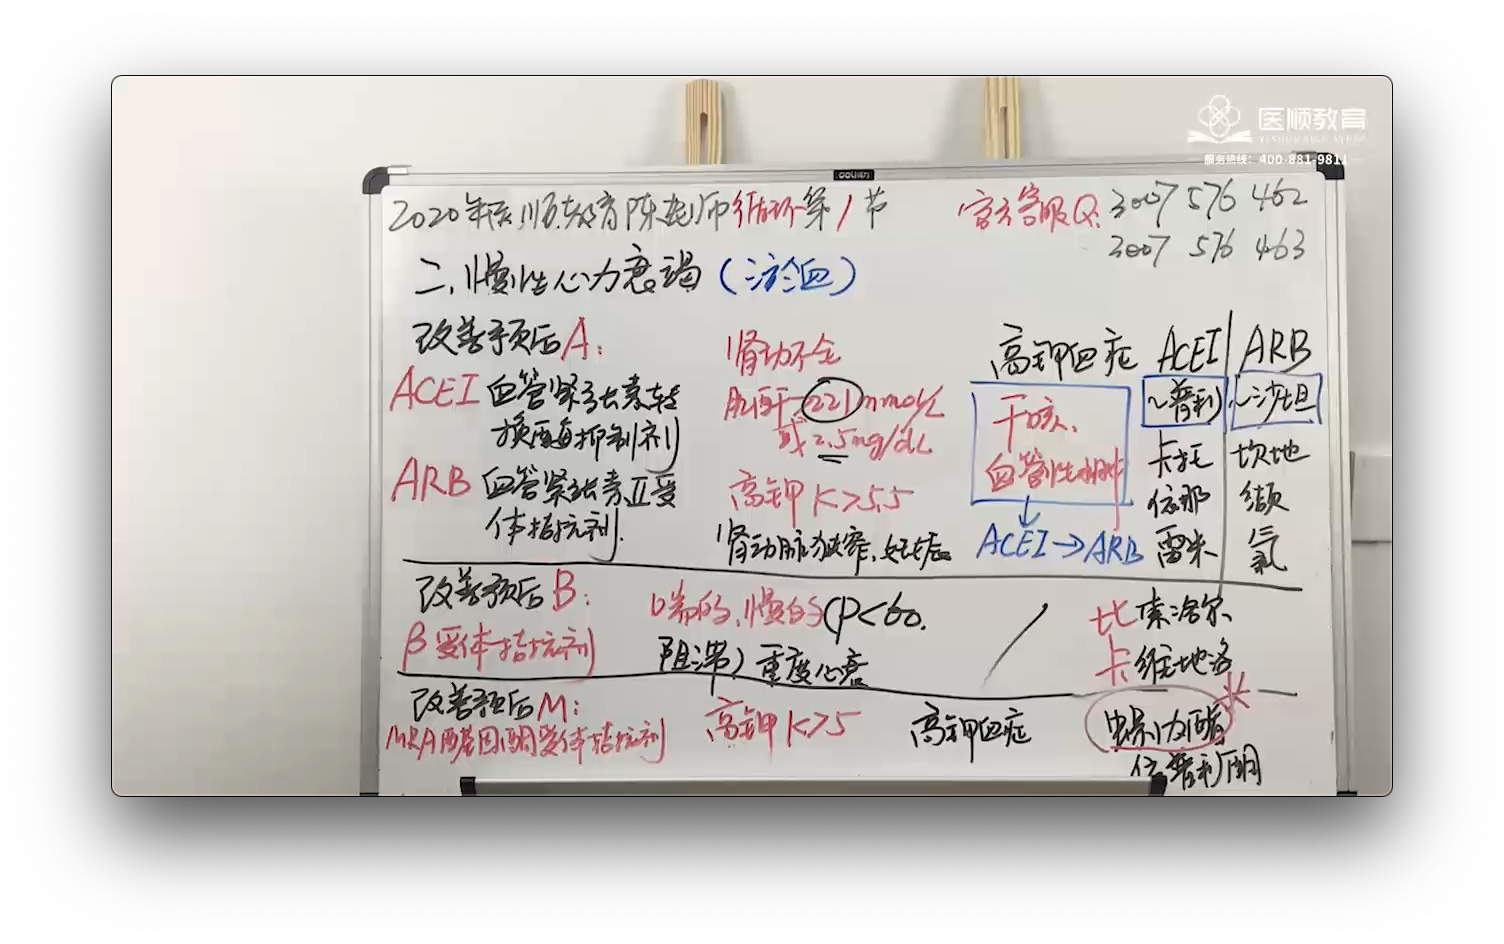 医顺教育
服务热线：400-881-9811
deli得力
2020年医顺教育陈老师循环第1节
官方客服Q: 3007 576 462
3007 576 463
二、慢性心力衰竭（淤血）
改善预后A：
ACEI 血管紧张素转
换酶抑制剂
ARB 血管紧张素Ⅱ受
体拮抗剂.
肾功不全
肌酐>221mmol/L
或2.5mg/dL
高钾 K>5.5
肾动脉狭窄、妊娠
高钾血症
干咳、
血管性水肿
ACEI→ARB
ACEI
~普利
卡托
依那
雷米
ARB
~沙坦
坎地
缬
氯
改善预后B：
β受体拮抗剂
喘的、慢的(P<60.
阻滞) 重度心衰
比索洛尔
卡维地洛
改善预后M：
MRA醛固酮受体拮抗剂
高钾 K>5
高钾血症
螺内酯
依普利酮